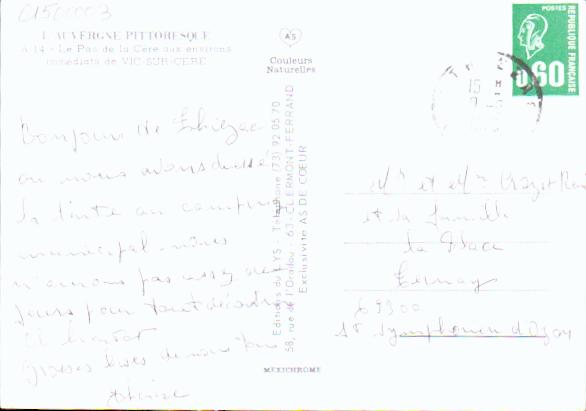 C1500003
L'AUVERGNE PITTORESQUE
A 14 - Le Pas de la Cère aux environs
immédiats de VIC-SUR-CÈRE
Couleurs
Naturelles
POSTES
RÉPUBLIQUE FRANÇAISE
0,60
15
Bonjour de Thiézac
où nous avons dressé
la tente au camping
municipal. nous
n'aurons pas assez de
jours pour tout découvrir
A bientôt
Grosses bises de nous tous
Editions du LYS - Téléphone (73) 92 05 70
58, rue de l'Oradou - 63 - CLERMONT-FERRAND
Exclusivité AS DE COEUR
MEXICHROME
Mr et Mme
et la famille
la Place
Ternay
69300
St Symphorien d'Ozon